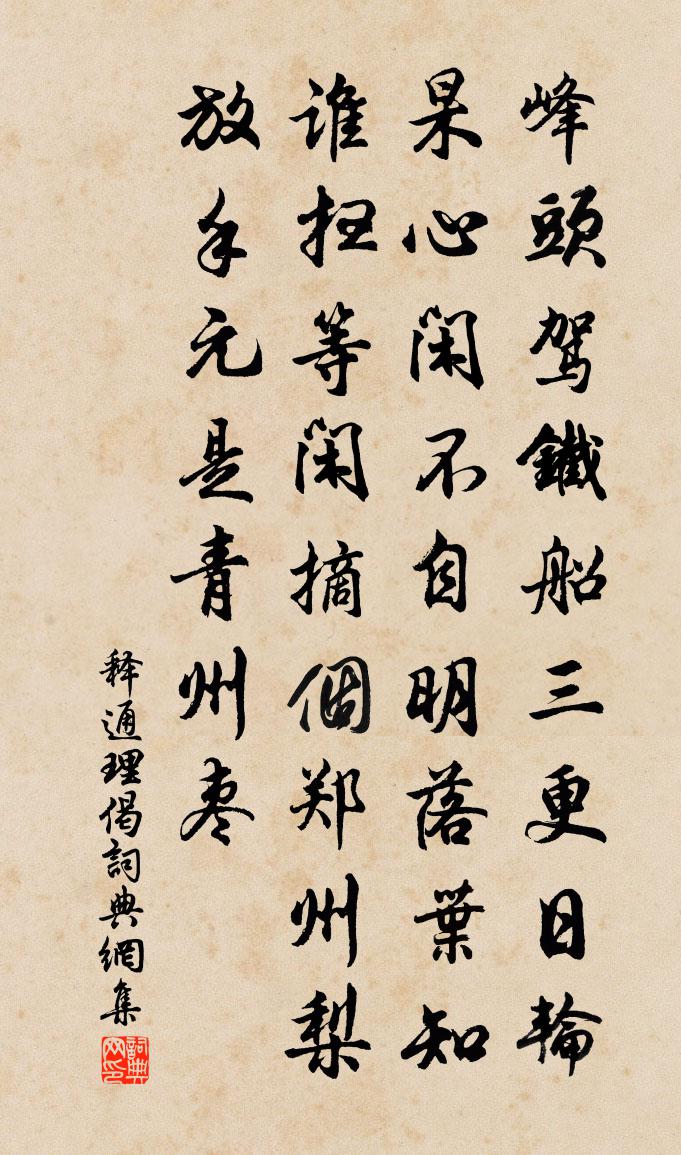 峰頭駕鐵船三更日輪
杲心闲不自明落葉知
誰扫等闲摘個郑州梨
放手元是青州枣
释通理偈詞典網集
詞典网印